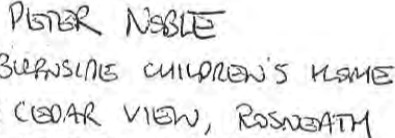 PETER NOBLE
BURNSIDE CHILDREN'S HOME
CEDAR VIEW, ROSNEATH